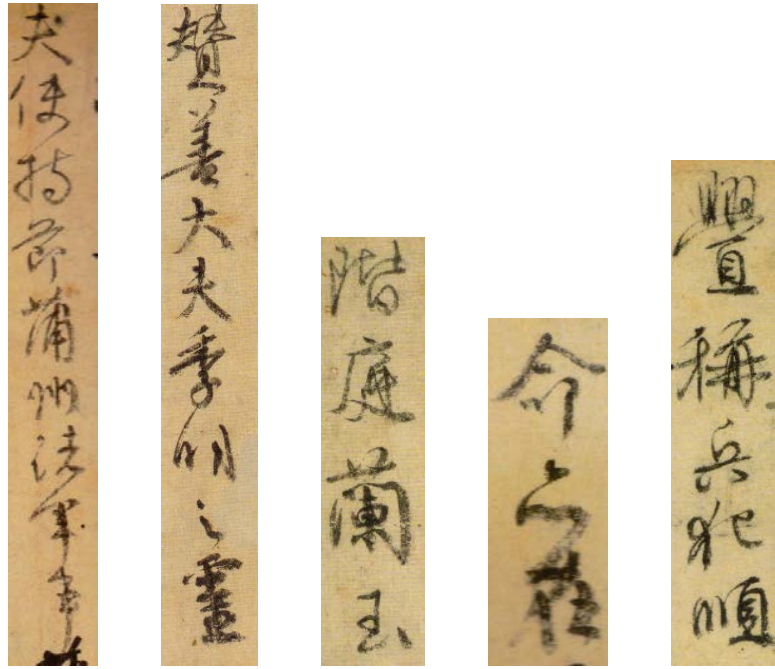 夫使持節蒲州諸軍事
贊善大夫季明之靈
階庭蘭玉
命亦在
釁稱兵犯順